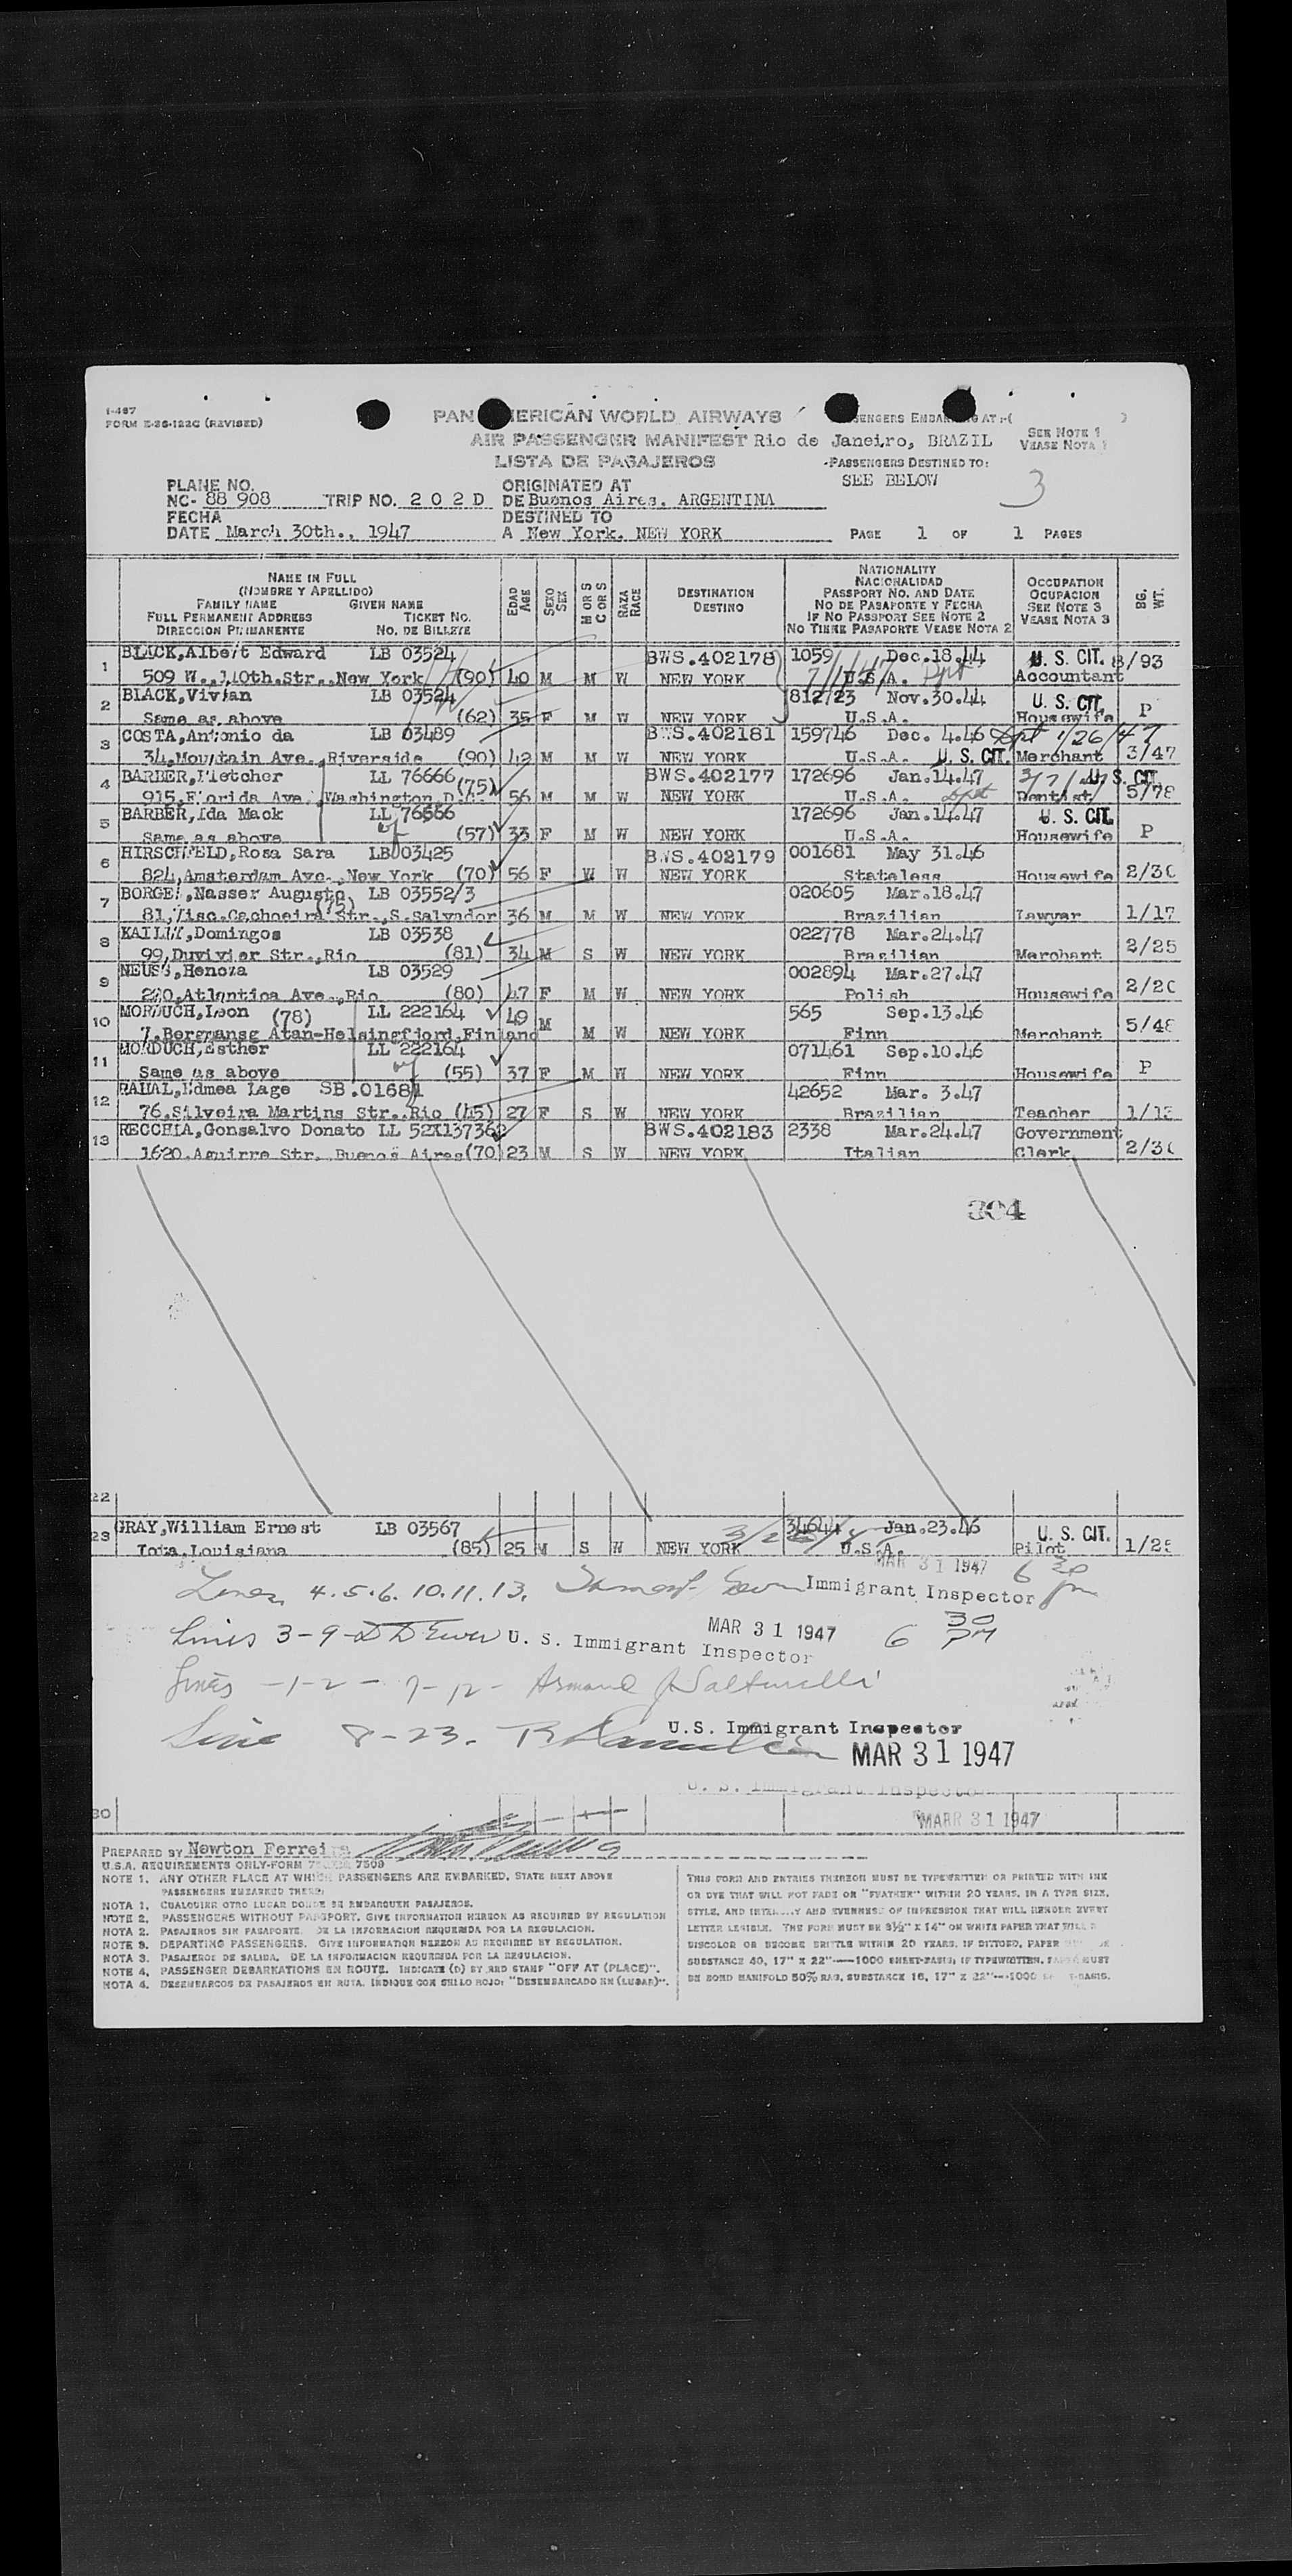 I-487
FORM E-36-122C (REVISED)
PAN AMERICAN WORLD AIRWAYS
AIR PASSENGER MANIFEST
LISTA DE PASAJEROS
PASSENGERS EMBARKING AT:-( )
Rio de Janeiro, BRAZIL
SEE NOTE 1
VEASE NOTA 1
PASSENGERS DESTINED TO:
SEE BELOW
3
PLANE NO.
NC- 88 908 TRIP NO. 2 0 2 D
ORIGINATED AT
DE Buenos Aires. ARGENTINA
FECHA
DATE March 30th., 1947
DESTINED TO
A New York. NEW YORK
PAGE 1 OF 1 PAGES
NAME IN FULL
(NOMBRE Y APELLIDO)
FAMILY NAME GIVEN NAME
FULL PERMANENT ADDRESS TICKET NO.
DIRECCION PERMANENTE NO. DE BILLETE
EDAD AGE
SEXO SEX
M OR S
C OR S
RAZA RACE
DESTINATION
DESTINO
NATIONALITY
NACIONALIDAD
PASSPORT NO. AND DATE
NO DE PASAPORTE Y FECHA
IF NO PASSPORT SEE NOTE 2
NO TIENE PASAPORTE VEASE NOTA 2
OCCUPATION
OCUPACION
SEE NOTE 3
VEASE NOTA 3
BG. WT.
1 BLACK,Albert Edward LB 03524 BWS.402178 1059 Dec.18.44 U. S. CIT. 8/93
509 W..110th.Str..New York (90) 40 M M W NEW YORK U.S.A. Accountant
2 BLACK,Vivian LB 03524 812/23 Nov.30.44 U. S. CIT.
Same as above (62) 35 F M W NEW YORK U.S.A. Housewife P
3 COSTA,Antonio da LB 03489 BWS.402181 159746 Dec. 4.46 1/26/47
34,Mountain Ave.,Riverside (90) 42 M M W NEW YORK U.S.A. U. S. CIT. Merchant 3/47
4 BARBER,Fletcher LL 76666 (75) BWS.402177 172696 Jan.14.47 U. S. CIT.
915,Florida Ave. Washington,D.C. 56 M M W NEW YORK U.S.A. Dentist 5/78
5 BARBER,Ida Mack LL 76666 172696 Jan.14.47 U. S. CIT.
Same as above (57) 33 F M W NEW YORK U.S.A. Housewife P
6 HIRSCHFELD,Rosa Sara LB 03425 BWS.402179 001681 May 31.46
824,Amsterdam Ave..New York (70) 56 F W W NEW YORK Stateless Housewife 2/30
7 BORGES,Nasser Augusto LB 03552/3 020605 Mar.18.47
81,Visc.Cachoeira Str.,S.Salvador 36 M M W NEW YORK Brazilian Lawyer 1/17
8 Domingos LB 03538 022778 Mar.24.47
99,Duvivier Str.,Rio (81) 34 M S W NEW YORK Brasilian Merchant 2/25
9 Henoza LB 03529 002894 Mar.27.47
Atlantica Ave.,Rio (80) 47 F M W NEW YORK Polish Housewife 2/20
10 MORDUCH,Leon (78) LL 222164 49 M 565 Sep.13.46
7.Bergmansg Atan-Helsingfjord.Finland M W NEW YORK Finn Merchant 5/48
11 MORDUCH,Esther LL 222164 071461 Sep.10.46
Same as above (55) 37 F M W NEW YORK Finn Housewife P
12 RAHAL,Edmea Lage SB.01681 42652 Mar. 3.47
76.Silveira Martins Str..Rio (45) 27 F S W NEW YORK Brazilian Teacher 1/13
13 RECCHIA,Gonsalvo Donato LL 52X137362 BWS.402183 2338 Mar.24.47 Government
1620.Aguirre Str. Buenos Aires(70) 23 M S W NEW YORK Italian Clerk 2/30
304
22
23 GRAY,William Ernest LB 03567 Jan.23.46 U. S. CIT.
Iota,Louisiana (85) 25 M S W NEW YORK U.S.A. Pilot 1/25
MAR 31 1947 6 30 pm
Lines 4.5.6.10.11.13. Immigrant Inspector
MAR 31 1947 6 30 PM
Lines 3-9- U. S. Immigrant Inspector
Lines -1-2-7-12- Armand J
U.S. Immigrant Inspector
Line 8-23.
MAR 31 1947
U. S. Immigrant Inspector
30
MAR 31 1947
PREPARED BY Newton Ferreira
U.S.A. REQUIREMENTS ONLY-FORM 7509
NOTE 1. ANY OTHER PLACE AT WHICH PASSENGERS ARE EMBARKED, STATE NEXT ABOVE
PASSENGERS EMBARKED THERE.
NOTA 1. CUALQUIER OTRO LUGAR DONDE SE EMBARQUEN PASAJEROS.
NOTE 2. PASSENGERS WITHOUT PASSPORT. GIVE INFORMATION HEREON AS REQUIRED BY REGULATION
NOTA 2. PASAJEROS SIN PASAPORTE. DE LA INFORMACION REQUERIDA POR LA REGULACION.
NOTE 3. DEPARTING PASSENGERS. GIVE INFORMATION HEREON AS REQUIRED BY REGULATION.
NOTA 3. PASAJEROS DE SALIDA. DE LA INFORMACION REQUERIDA POR LA REGULACION.
NOTE 4. PASSENGER DEBARKATIONS EN ROUTE. INDICATE (D) BY RED STAMP "OFF AT (PLACE)".
NOTA 4. DESEMBARCOS DE PASAJEROS EN RUTA. INDIQUE CON SELLO ROJO: "DESEMBARCADO EN (LUGAR)".
THIS FORM AND ENTRIES THEREON MUST BE TYPEWRITTEN OR PRINTED WITH INK
OR DYE THAT WILL NOT FADE OR "FEATHER" WITHIN 20 YEARS, IN A TYPE SIZE,
STYLE, AND INTENSITY AND EVENNESS OF IMPRESSION THAT WILL RENDER EVERY
LETTER LEGIBLE. THE FORM MUST BE 8½" X 14" ON WHITE PAPER THAT WILL
DISCOLOR OR BECOME BRITTLE WITHIN 20 YEARS. IF DITTOED, PAPER
SUBSTANCE 40, 17" X 22"-1000 SHEET-BASIS; IF TYPEWRITTEN, PAPER MUST
BE BOND MANIFOLD 50% RAG, SUBSTANCE 16, 17" X 22"-1000 BASIS.